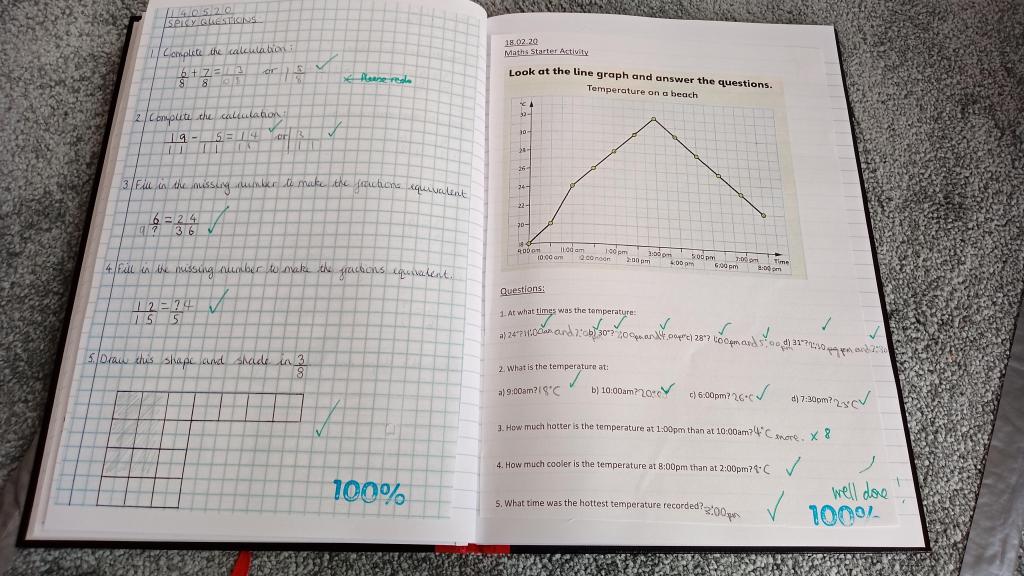 140520
SPICY QUESTIONS
1 Complete the calculation:
6/8 + 7/8 = 13/8 or 1 5/8 ✓
← Please redo
2 Complete the calculation:
19/11 - 5/11 = 14/11 or 1 3/11 ✓
3 Fill in the missing number to make the fractions equivalent
6/9? = 24/36 ✓
4 Fill in the missing number to make the fractions equivalent.
12/15 = ?4/5 ✓
5. Draw this shape and shade in 3/8
✓
100%
18.02.20
Maths Starter Activity
Look at the line graph and answer the questions.
Temperature on a beach
°C
32
30
28
26
24
22
20
18
9:00 am 11:00 am 1:00 pm 3:00 pm 5:00 pm 7:00 pm Time
10:00 am 12:00 noon 2:00 pm 4:00 pm 6:00 pm 8:00 pm
Questions:
1. At what times was the temperature:
a) 24°? 11:00am and b) 30°? and 4.00pm c) 28°? and d) 31°? and
2. What is the temperature at:
a) 9:00am? 18°C b) 10:00am? 20°C ✓ c) 6:00pm? 26°C ✓ d) 7:30pm? 23°C ✓
3. How much hotter is the temperature at 1:00pm than at 10:00am? 4°C more. x 8
4. How much cooler is the temperature at 8:00pm than at 2:00pm? °C ✓
5. What time was the hottest temperature recorded? 3:00pm ✓
well done!
100%